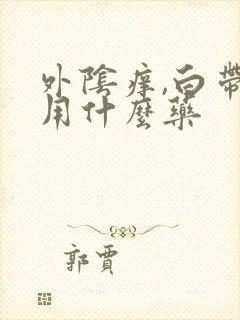 外陰痒,白帶
用什麼藥
郭賈